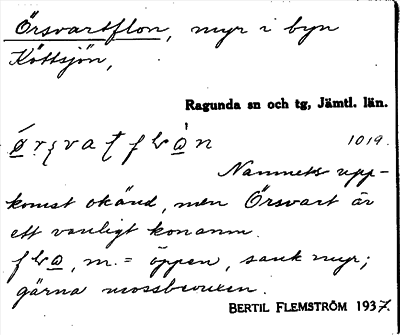 Örsvartflon, myr i byn
Köttsjön,
Ragunda sn och tg, Jämtl. län.
1019.
Namnets upp-
komst okänd, men Örsvart är
ett vanligt konamn.
m. = öppen, sank myr;
gärna mossbevuxen.
BERTIL FLEMSTRÖM 1937.